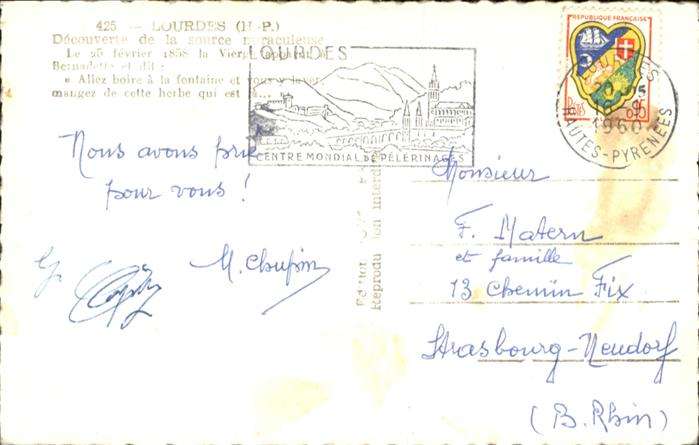 425 — LOURDES (H.-P.)
Découverte de la source miraculeuse
Le 25 février 1858 la Vierge
Bernadette et dit :
« Allez boire à la fontaine et vous y laver
mangez de cette herbe qui est là... »
LOURDES
CENTRE MONDIAL DE PÈLERINAGES
REPUBLIQUE FRANÇAISE
LOURDES
1960
HAUTES-PYRENEES
Nous avons prié
pour vous !
M. Chupin
Reproduction interdite
Monsieur
F. Matern
et famille
13 Chemin Fix
Strasbourg-Neudorf
(B. Rhin)